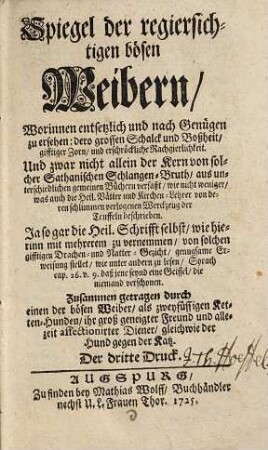 Spiegel der regiersich-
tigen bösen
Weibern/
Worinnen entsetzlich und nach Genügen
zu ersehen: dero grossen Schalck und Boßheit/
gifftiger Zorn/ und erschröckliche Nachgierlichkeit.
Und zwar nicht allein der Kern von sol-
cher Sathanischen Schlangen-Bruth/ aus un-
terschiedlichen gemeinen Büchern verfaßt/ wie nicht weniger/
was auch die Heil. Väter und Kirchen-Lehrer von de-
ren schlimmen verlogenen Werckzeug der
Teuffeln beschrieben.
Ja so gar die Heil. Schrifft selbst/ wie hie-
rinn mit mehrerem zu vernemmen/ von solchen
gifftigen Drachen- und Natter-Gezücht/ genugsame Er-
weisung stellet/ wie unter andern zu lesen/ Syrach
cap. 26. v. 9. daß jene seynd eine Geissel/ die
niemand verschonen.
Zusammen getragen durch
einen der bösen Weiber/ als zweyfüssigen Ket-
ten-Hunden/ ihr groß geneigter Freund und alle-
zeit affectionirter Diener/ gleichwie der
Hund gegen der Katz.
Der dritte Druck.
AUGSPURG/
Zu finden bey Mathias Wolff/ Buchhändler
nechst U. L. Frauen Thor. 1725.